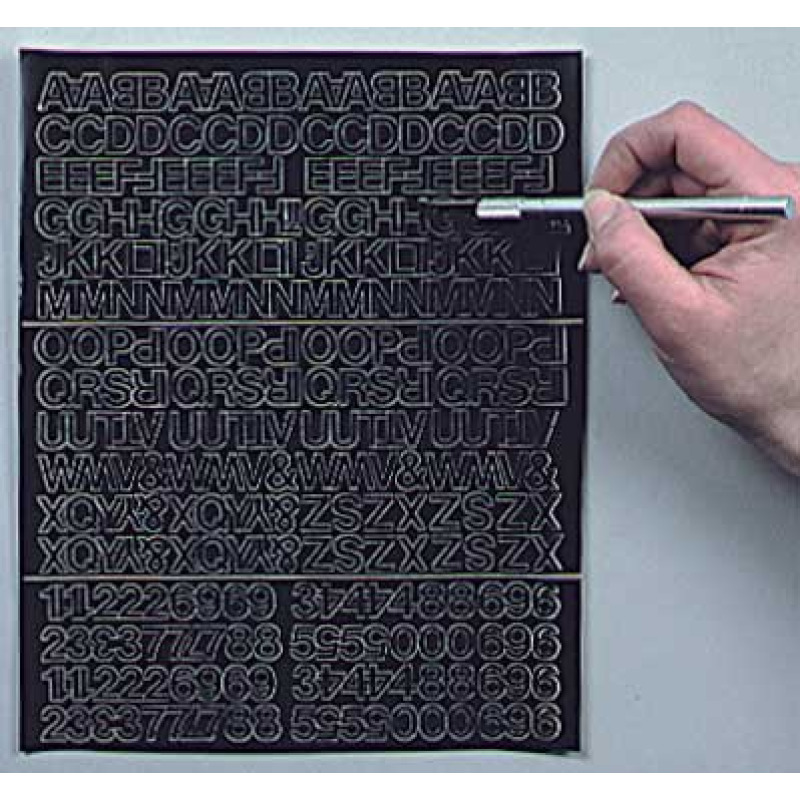 AAABBAAABBAAABBAAABB
CCDDCCDDCCDDCCDD
EEEFFEEEFF EEEFFEEEFF
GGHHGGHHIIGGHHG
JKKLLJKKLLJKKLLJKK
MMNNMMNNMMNNMMNN
OOPPOOPPOOPPOOPP
QRSRQRSRQRSRQRSR
UUTTVUUTTVUUTTVUUTTV
WMV&WMV&WMV&WMV&
XQYY&XQYY&ZSZXZSZX
XQYY&XQYY&ZSZXZSZX
112226969 3444488696
2333777788 5555000696
112226969 3444488696
2333777788 5555000696